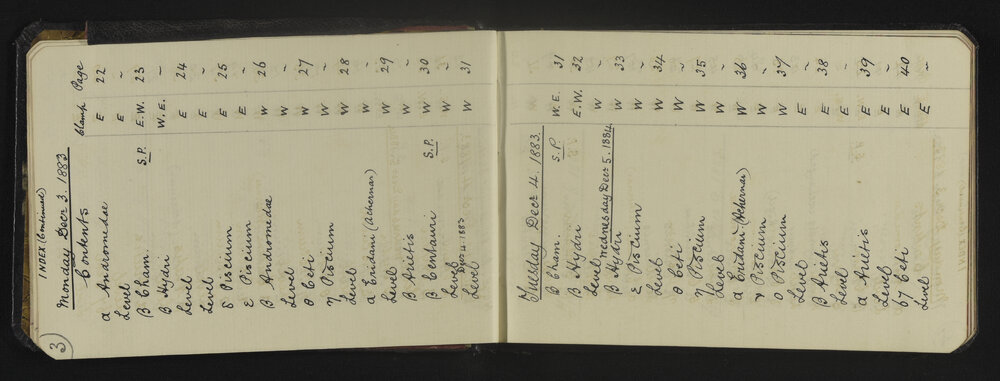 3
INDEX (Continued)
Monday Decr 3. 1883
Contents Clamp. Page
α Andromedae E 22
Level E "
β Cham. S.P. E.W. 23
β Hydri W.E. "
Level E 24
Level E "
δ Piscium E 25
ε Piscium E "
β Andromedae W 26
Level W "
θ Ceti W 27
η Piscium W "
Level W 28
α Eridani (Achernar) W "
Level W 29
β Arietis W "
β Centauri S.P. W 30
Level W "
Decr 4. 1883
Level W 31
Tuesday Decr 4. 1883.
β Cham. S.P. W.E. 31
β Hydri E.W. 32
Level W "
Wednesday Decr 5. 1884
β Hydri W 33
ε Piscium W "
Level W 34
θ Ceti W "
η Piscium W 35
Level W "
α Eridani (Achernar) W 36
ν Piscium W "
ο Piscium W 37
Level E "
β Arietis E 38
Level E "
α Arietis E 39
Level E "
67 Ceti E 40
Level E "